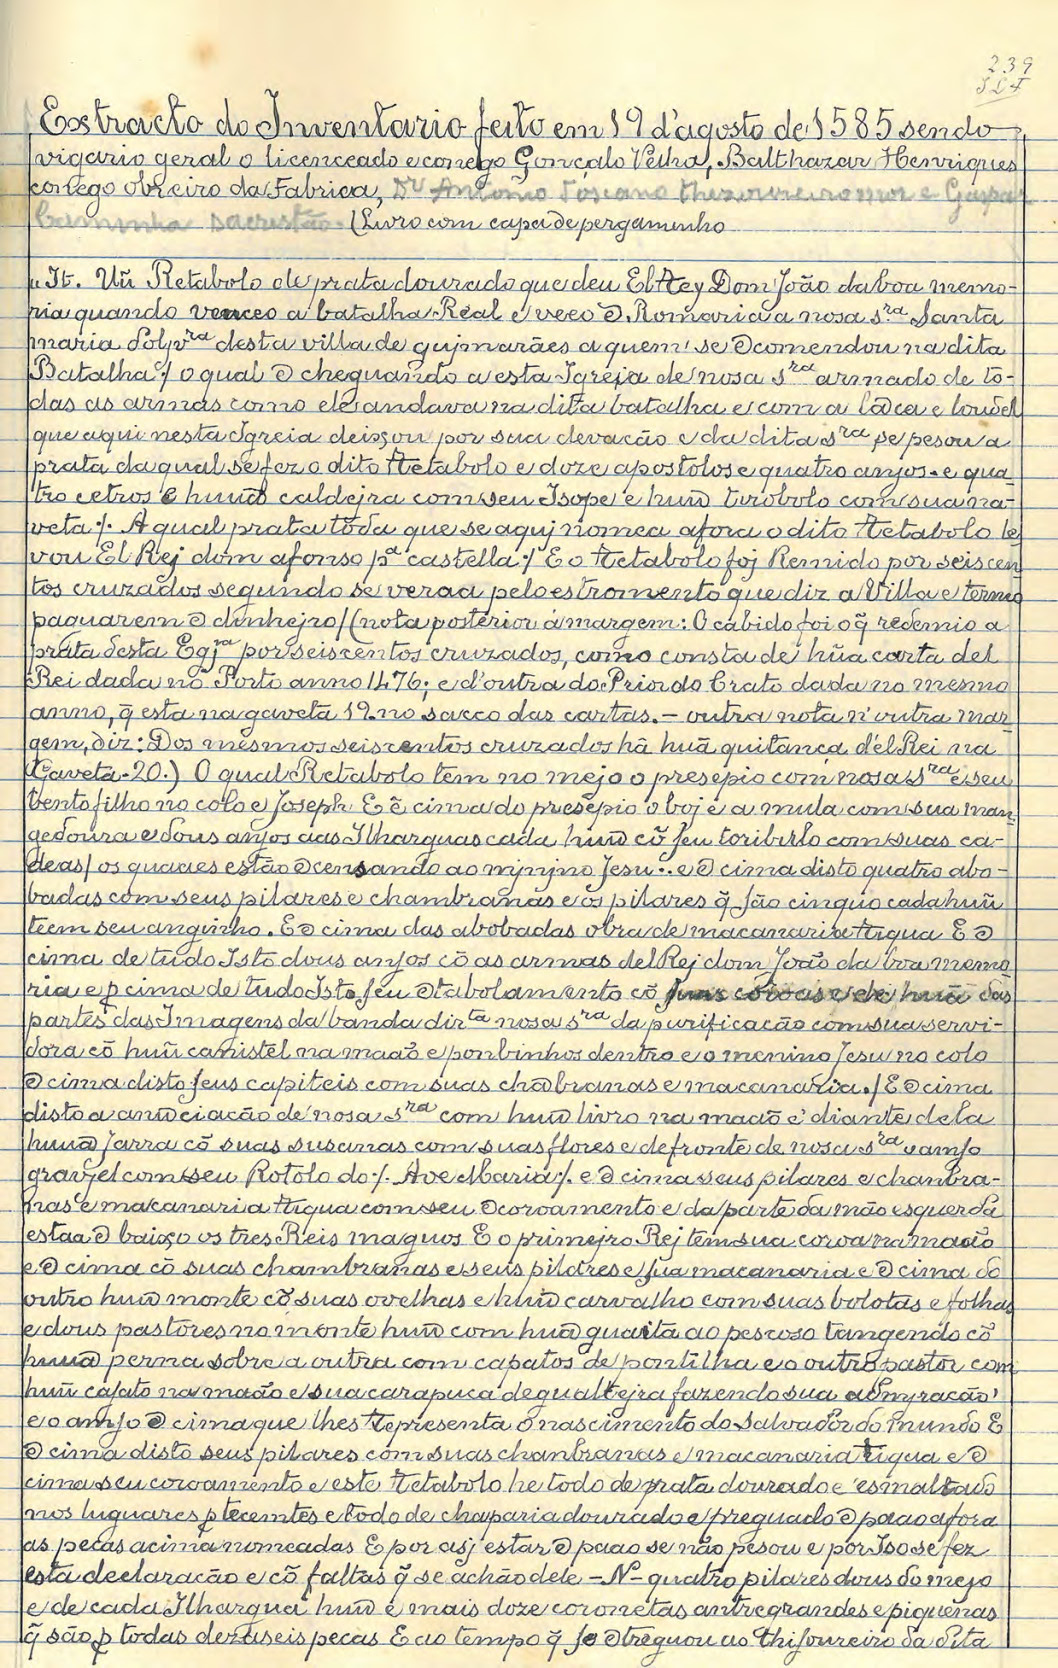 239
Extracto do Inventario feito em 19 d'agosto de 1585 sendo
vigario geral o licenceado e conego Gonçalo Velha, Balthazar Henriques
conego obreiro da Fabrica, Dr Antonio Toscano thezoureiro mor e Gaspar
Caminha sacristão. (Livro com capa de pergaminho
It. Uũ Retabolo de prata dourado que deu El Rey Dom João da boa memo-
ria quando venceo a batalha Real e veeo ẽ Romaria a nosa sra Santa
maria dolyvra desta villa de gujmarães a quem se ẽcomendou na dita
Batalha/. o qual ẽ cheguando a esta Igreja de nosa sra armado de to-
das as armas como ele andava na dita batalha e com a lãça e loudel
que aqui nesta Igreia deixou por sua devacão e da dita sra se pesou a
prata da qual se fez o dito Retabolo e doze apostolos e quatro anjos. e qua-
tro cetros e huũ caldejra com seu Isope e huũ turobolo com sua na-
veta/. A qual prata toda que se aquj nomea afora o dito Retabolo le-
vou El Rej dom afonso pa castella/. E o Retabolo foj Remido por seiscen
tos cruzados segundo se veraa pelo estromento que diz a Villa e termo
paguarem ẽ dinhejro/(nota posterior á margem: O cabido foi o q̃ redemio a
prata desta Egjra por seiscentos cruzados, como consta de hũa carta del
Rei dada no Porto anno 1476; e d'outra do Prior do Crato dada no mesmo
anno, q̃ esta na gaveta 19. no sacco das cartas. - outra nota n'outra mar-
gem, diz: Dos mesmos seiscentos cruzados há huã quitança d'el Rei na
Gaveta-20.) O qual Retabolo tem no mejo o presepio com nosa sra e seu
bento filho no colo e Joseph E ẽ cima do presepio o boj e a mula com sua man-
gedoura e dous anjos aas Ilharguas cada huũ cõ seu toribulo com suas ca-
deas/ os quaaes estão ẽcensando ao mjnjno Jesu:. e ẽ cima disto quatro abo-
badas com seus pilares e chambranas e os pilares q̃ são cinquo cada huũ
teem seu anginho. E ẽ cima das abobadas obra de macanaria Rigua E ẽ
cima de tudo Isto dous anjos cõ as armas del Rej dom João da boa memo-
ria e p cima de tudo Isto seu ẽtabolamento cõ suas coroas e de huã das
partes das Imagens da banda dirta nosa sra da purificacão com sua servi-
dora cõ huũ canistel na maão e ponbinhos dentro e o menino Jesu no colo
ẽ cima disto seus capiteis com suas chãbranas e macanaria./ E ẽ cima
disto a anũciacão de nosa sra com huũ livro na maão e diante dela
huũa Jarra cõ suas susanas com suas flores e defronte de nosa sra o anjo
gravjel com seu Rotolo do/. Ave Maria/. e ẽ cima seus pilares e chanbra-
nas e macanaria Rigua com seu ẽcoroamento e da parte da mão esquerda
estaa ẽ baixo os tres Reis maguos E o primejro Rej tem sua coroa na maão
e ẽ cima cõ suas chambranas e seus pilares e sua macanaria e ẽ cima do
outro huũ monte cõ suas ovelhas e huũ carvalho com suas bolotas e folhas
e dous pastores no monte huũ com huã guaita ao pescoso tangendo cõ
huũa perna sobre a outra com capatos de pontilha e o outro pastor com
huũ cajato na maão e sua carapuca de gualtejra fazendo sua admyracão
e o anjo ẽ cima que lhes Representa o nascimento do Salvador do mundo E
ẽ cima disto seus pilares com suas chanbranas e macanaria Rigua e ẽ
cima seu coroamento e este Retabolo he todo de prata dourado e esmaltado
nos luguares ptecemtes e todo de chaparia dourado e preguado ẽ paao afora
as pecas acima nomeadas E por asj estar ẽ paao se não pesou e por Iso se fez
esta declaracão e cõ faltas q̃ se achão dele -N- quatro pilares dous do mejo
e de cada Ilhargua huũ e mais doze coronetas antre grandes e piquenas
q̃ são p todas dezaseis pecas E ao tempo q̃ se ẽtreguou ao thisoureiro da dita